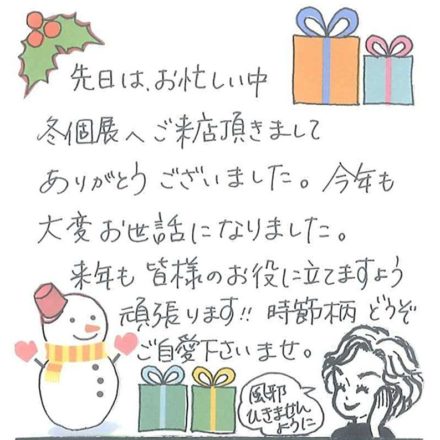 先日は、お忙しい中
冬個展へご来店頂きまして
ありがとうございました。今年も
大変お世話になりました。
来年も皆様のお役に立てますよう
頑張ります!!時節柄どうぞ
ご自愛下さいませ。
風邪
ひきません
ように